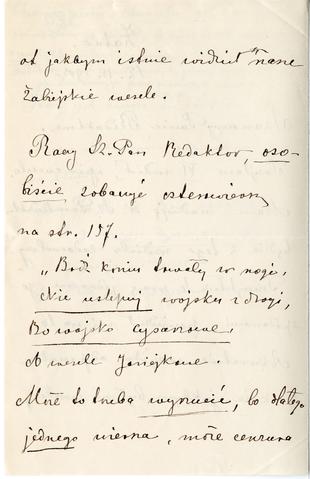 ot jakbym istnie widział nasze
Żabiejskie wesele.
Raczy Sz. Pan Redaktor, oso-
biście zobaczyć czterowiersz
na str. 157.
„Bądź koniu trwały w nogi,
Nie ustępuj wojsku z drogi,
Bo wojsko cysarowe,
A wesele
Może to trzeba wyrzucić, bo dlatego
jednego wiersza, może cenzura